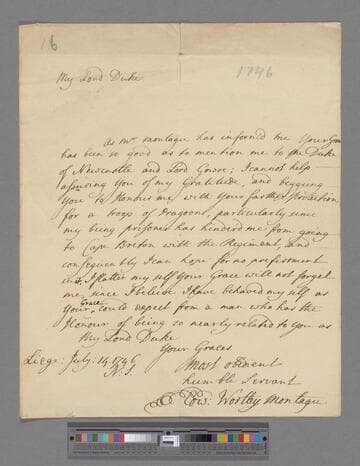 16
1746
My Lord Duke
As Mr. Montagu has inform'd me Your Grace
has been so good as to mention me to the Duke
of Newcastle and Lord Gowre; I cannot help
assuring You of my Gratitude, and begging
You to Honour me with Your farther protection
for a troop of Dragoons, particularly since
my being prisoner has hinder'd me from going
to Cape Breton with the Regiment, and
consequently I can hope for no preferment
in it. I flatter my self Your Grace will not forget
me, since I believe I have behaved my self as
Your Grace could expect from a man who has the
Honour of being so nearly related to You as
My Lord Duke
Your Graces
Liege: July: 14 1746
N: S.
Most obedient
humble Servant
Edw: Wortley Montagu